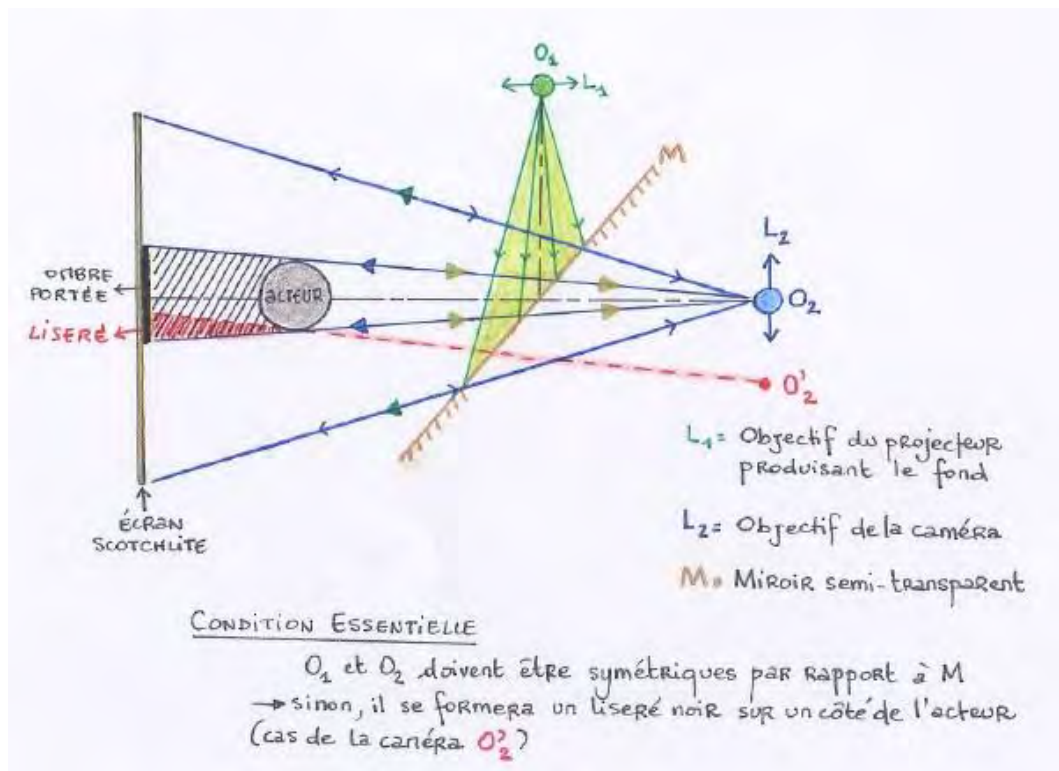 O1
L1
M
L2
OMBRE
PORTÉE
ACTEUR
O2
LISERÉ
O'2
L1= Objectif du projecteur
produisant le fond
ÉCRAN
SCOTCHLITE
L2= Objectif de la caméra
M= Miroir semi-transparent
CONDITION ESSENTIELLE
O1 et O2 doivent être symétriques par rapport à M
→ sinon, il se formera un liseré noir sur un côté de l'acteur
(cas de la caméra O'2)